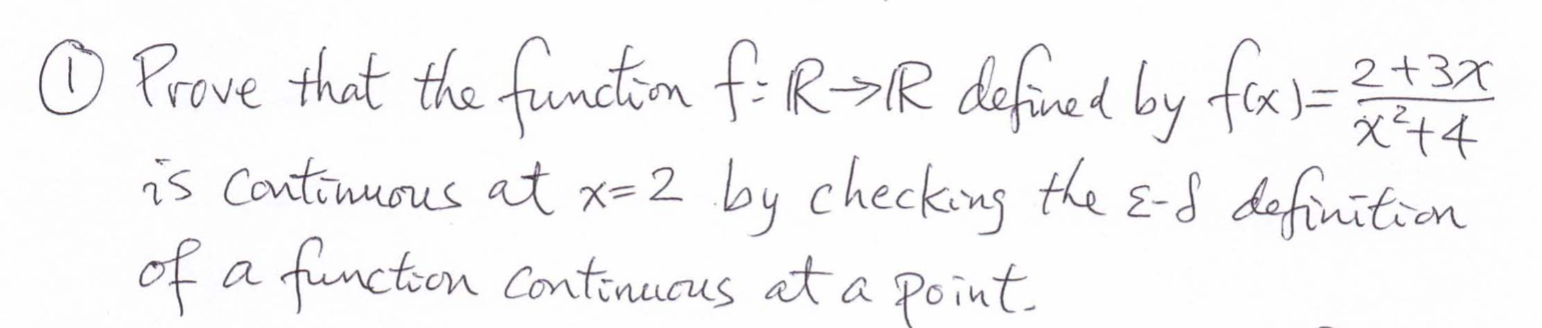 ① Prove that the function f: ℝ→ℝ defined by f(x) = \frac{2+3x}{x²+4}
is continuous at x=2 by checking the ε-δ definition
of a function continuous at a point.